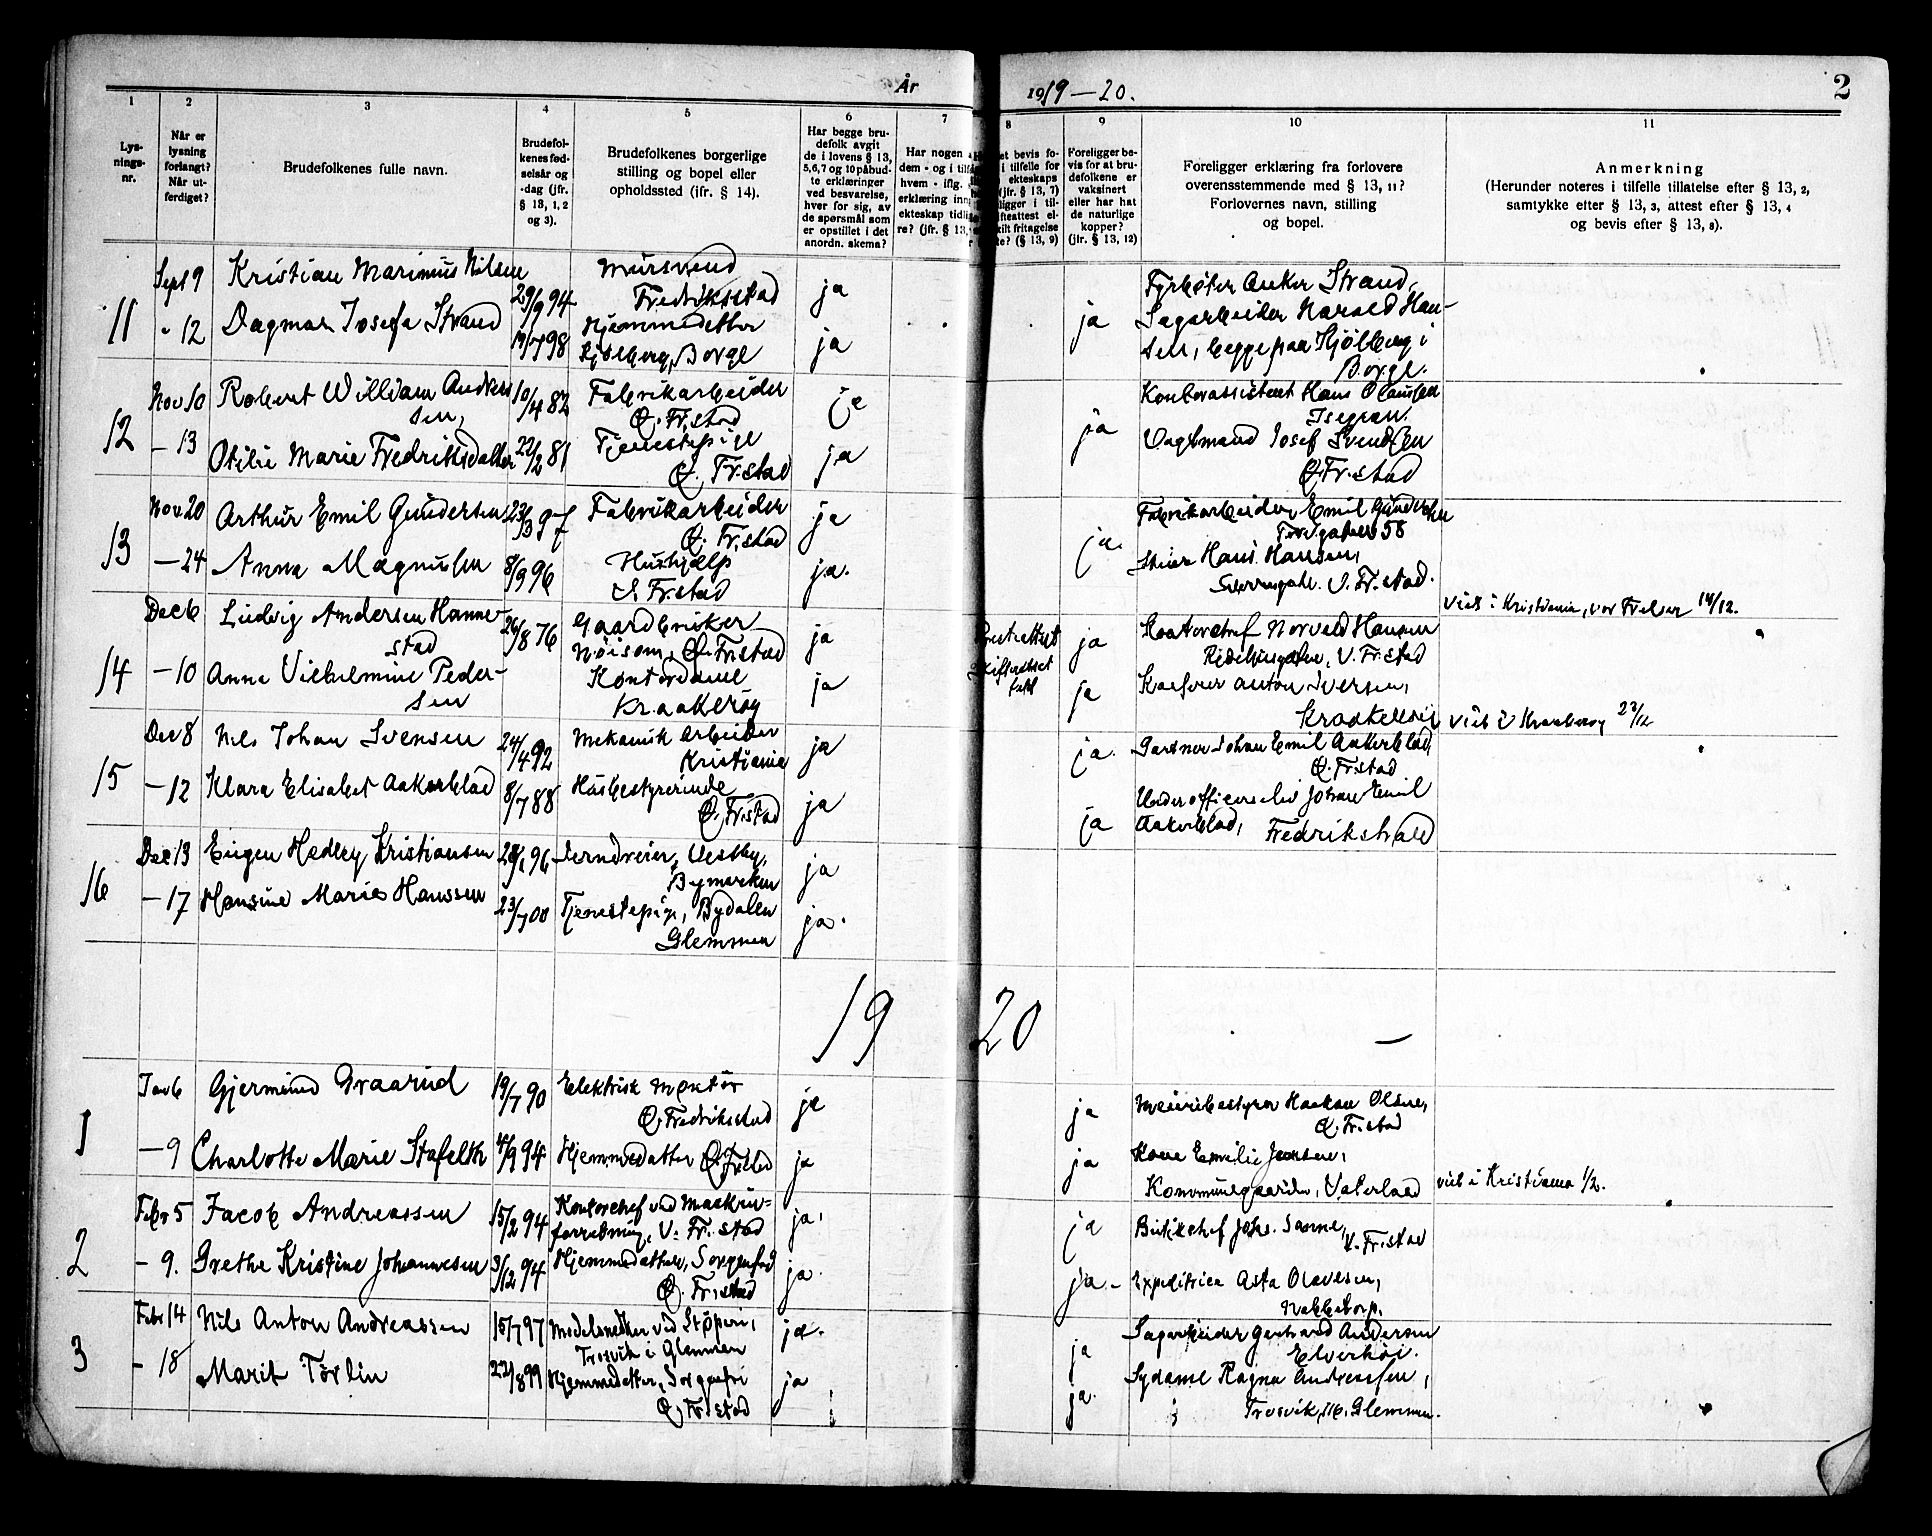 År 1919–20.
2
1 2 3 4 5 6 7 8 9 10 11
Lys-
nings-
nr.
Når er
lysning
forlangt?
Når ut-
ferdiget?
Brudefolkenes fulle navn.
Brudefol-
kenes fød-
selsår og
-dag (jfr.
§ 13, 1, 2
og 3).
Brudefolkenes borgerlige
stilling og bopel eller
opholdssted (ifr. § 14).
Har begge bru-
defolk avgit
de i lovens § 13,
5, 6, 7 og 10 påbud-
te erklæringer
ved besvarelse,
hver for sig, av
de spørsmål som
er opstillet i det
anordn. skema?
Har nogen
dem - og i tilf
hvem - iflg.
erklæring inn
ekteskap tidli
re? (jfr. § 13,
et bevis fo-
i tilfelle for
ekteskaps
(jfr. § 13, 7)
ligger i til-
fteattest el-
kilt fritagelse
te? (§ 13, 9)
Foreligger be-
vis for at bru-
defolkene er
vaksinert
eller har hat
de naturlige
kopper?
(jfr. § 13, 12)
Foreligger erklæring fra forlovere
overensstemmende med § 13, 11?
Forlovernes navn, stilling
og bopel.
Anmerkning
(Herunder noteres i tilfelle tillatelse efter § 13, 2,
samtykke efter § 13, 3, attest efter § 13, 4
og bevis efter § 13, 8).
11
Sept 9
" 12
Kristian Marinius Nilsen
Dagmar Josefa Strand
29/9 94
/7 98
Mursvend
Fredriksstad
Hjemmedatter
Kjölberg, Borge
ja
ja
ja
Fyrbøter Anker Strand,
Sagarbeider Harald Han-
sen, begge paa Kjölberg i
Borge.
12
Nov 10
– 13
Robert William Andres
sen,
Otilie Marie Fredriksdatter
10/4 82
22/2 81
Fabrikarbeider
Ø. Fr.stad
Tjenestepige
Ø. Fr.stad
ja
ja
ja
Kontorassistent Hans Olaussen
Isegran.
Vagtmand Josef Svendsen
Ø. Fr.stad
13
Nov 20
– 24
Arthur Emil Gundersen
Anna Magnusen
23/3 97
8/9 96
Fabrikarbeider
Ø. Fr.stad
Hushjælp
Ø. Fr.stad
ja
ja.
ja.
Fabrikarbeider Emil Gundersen
58
Hans Hansen,
V. Fr.stad.
14
Dec 6
– 10
Ludvig Andersen Hanne-
stad
Anna Vilhelmine Peder-
sen
26/8 76
Gaardbruker
Nöisom, Ø. Fr.stad
Kontordame
Kraakeröy
ja
ja
Skifteattest
ja
ja
Kontorchef Norvald Hansen
Ridehusgaten, V. Fr.stad
Anton Iversen,
Kraakeröy
viet i Kristiania, vor Frelser 14/12.
15
Dec 8
– 12
Nils Johan Svensen
Klara Elisabet Aakerblad
24/4 92
8/7 88
Mekanisk Arbeider
Kristiania
Husbestyrerinde
Ø. Fr.stad
ja
ja
ja.
ja
Gartner Johan Emil Aakerblad,
Ø. Fr.stad
Underofficerselev Johan Emil
Aakerblad, Fredrikshald
viet i Kraakeröy 27/12
16
Dec 13
– 17
Eugen Hedley Kristiansen
Hansine Marie Hanssen
28/1 96
23/7 00
Jerndreier, Vestby,
Bymarken
Tjenestepige, Bydalen
Glemmen
ja
ja.
19 20 –
1
Jan 6
– 9
Gjermund Graarud
Charlotte Marie Stafelth
19/7 90
4/9 94
Elektrisk Montör
Ø. Fredriksstad
Hjemmedatter Ø. Fr.stad
ja
ja
ja
ja
Meieribestyrer Haakon Olsen,
Ø. Fr.stad
Kone Emilie Jensen,
Kommunegaarden, Vaterland
viet i Kristiania 1/2.
2
Febr 5
– 9.
Jacob Andreassen
Grethe Kristine Johannesen
15/2 94
3/12 94
Kontorchef ved Maskin-
forretning, V. Fr. stad
Hjemmedatter, Sorgenfri
Ø. Fr.stad
ja,
ja.
ja
ja.-
Butikchef Johs. Sanne,
V. Fr.stad
Expeditrice Asta Olavesen,
Nabbetorp.
3
Febr 14
– 18
Nils Anton Andreassen
Marit Törlin
15/7 97
22/8 99
Modelsnekker ved Støperi,
Trosvik i Glemmen
Hjemmedatter, Sorgenfri
Ø. Fr.stad
ja.
ja
ja
ja.
Sagarbeider Gerhard Andersen
Elverhöi.
Sydame Ragna Andreassen,
Trosvik, Glemmen.